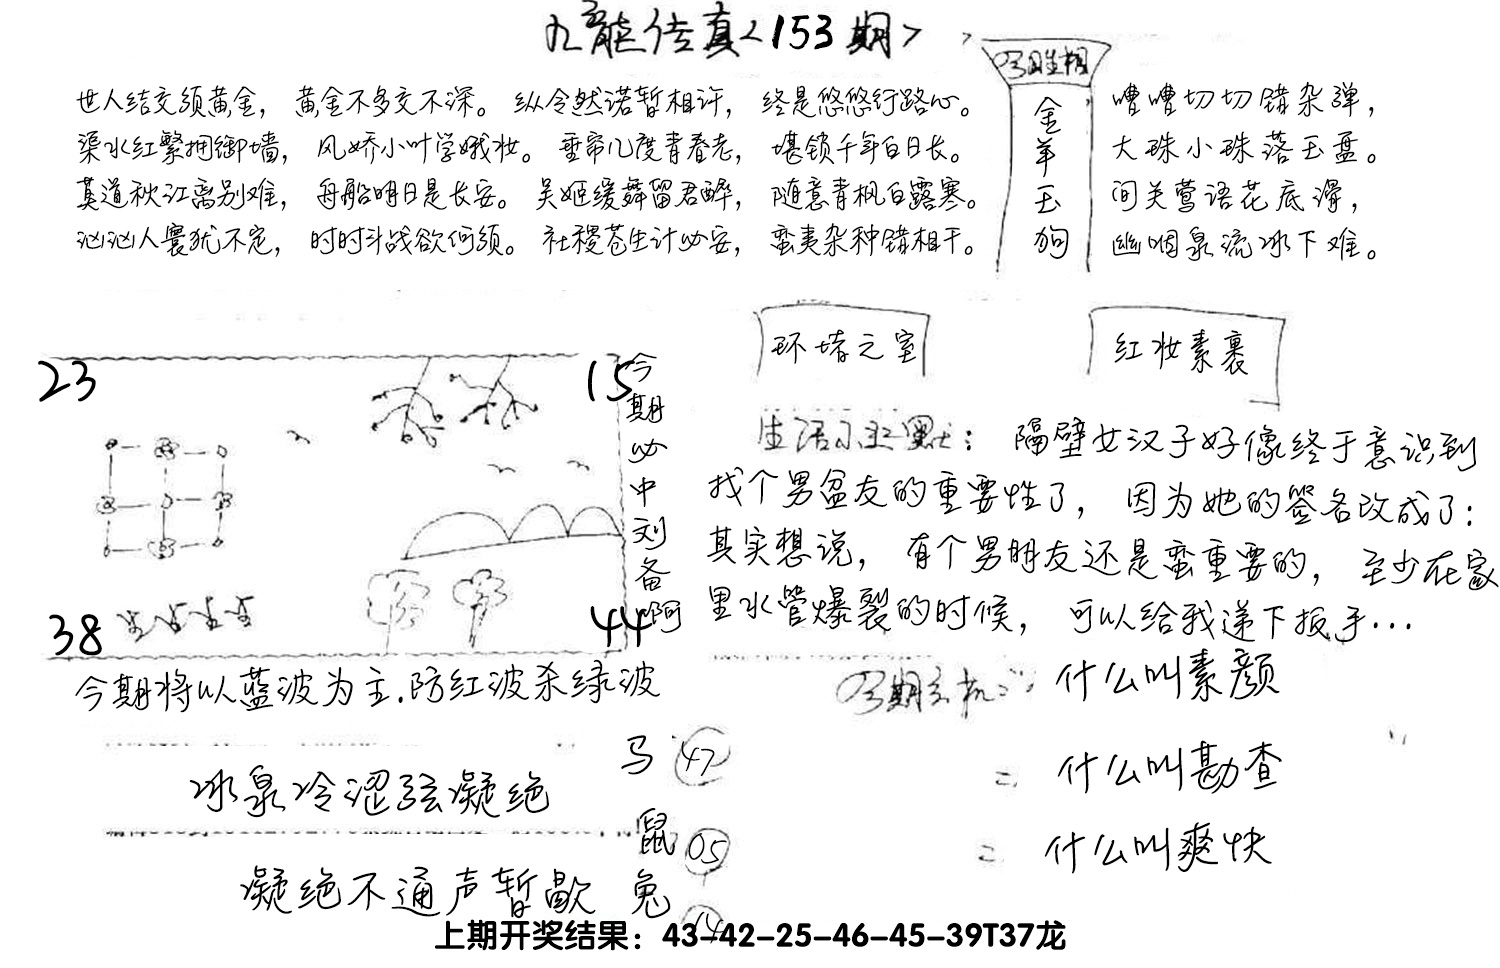 九龙传真<153期>
世人结交须黄金，黄金不多交不深。纵令然诺暂相许，终是悠悠行路心。
渠水红繁拥御墙，风娇小叶学娥妆。垂帘几度青春老，堪锁千年白日长。
莫道秋江离别难，舟船明日是长安。吴姬缓舞留君醉，随意青枫白露寒。
汹汹人寰犹不定，时时斗战欲何须。社稷苍生计必安，蛮夷杂种错相干。
金
羊
玉
狗
嘈嘈切切错杂弹，
大珠小珠落玉盘。
间关莺语花底滑，
幽咽泉流冰下难。
环堵之室
红妆素裹
23
15
38
44
今期必中刘备啊
今期将以蓝波为主.防红波杀绿波
生活小幽默：隔壁女汉子好像终于意识到
找个男盆友的重要性了，因为她的签名改成了：
其实想说，有个男朋友还是蛮重要的，至少在家
里水管爆裂的时候，可以给我递下扳手…
什么叫素颜
二 什么叫勘查
二 什么叫爽快
冰泉冷涩弦凝绝
凝绝不通声暂歇
马 47
鼠 05
兔
上期开奖结果：43-42-25-46-45-39T37龙